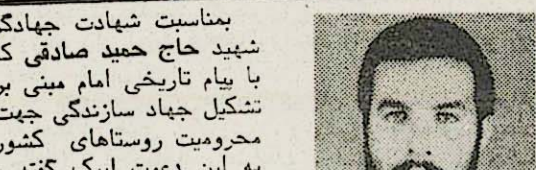 بمناسبت شهادت جهادگر
شهید حاج حمید صادقی ک
با پیام تاریخی امام مبنی بر
تشکیل جهاد سازندگی جهت
محرومیت روستاهای کشور
به این دعوت لبیک گفته